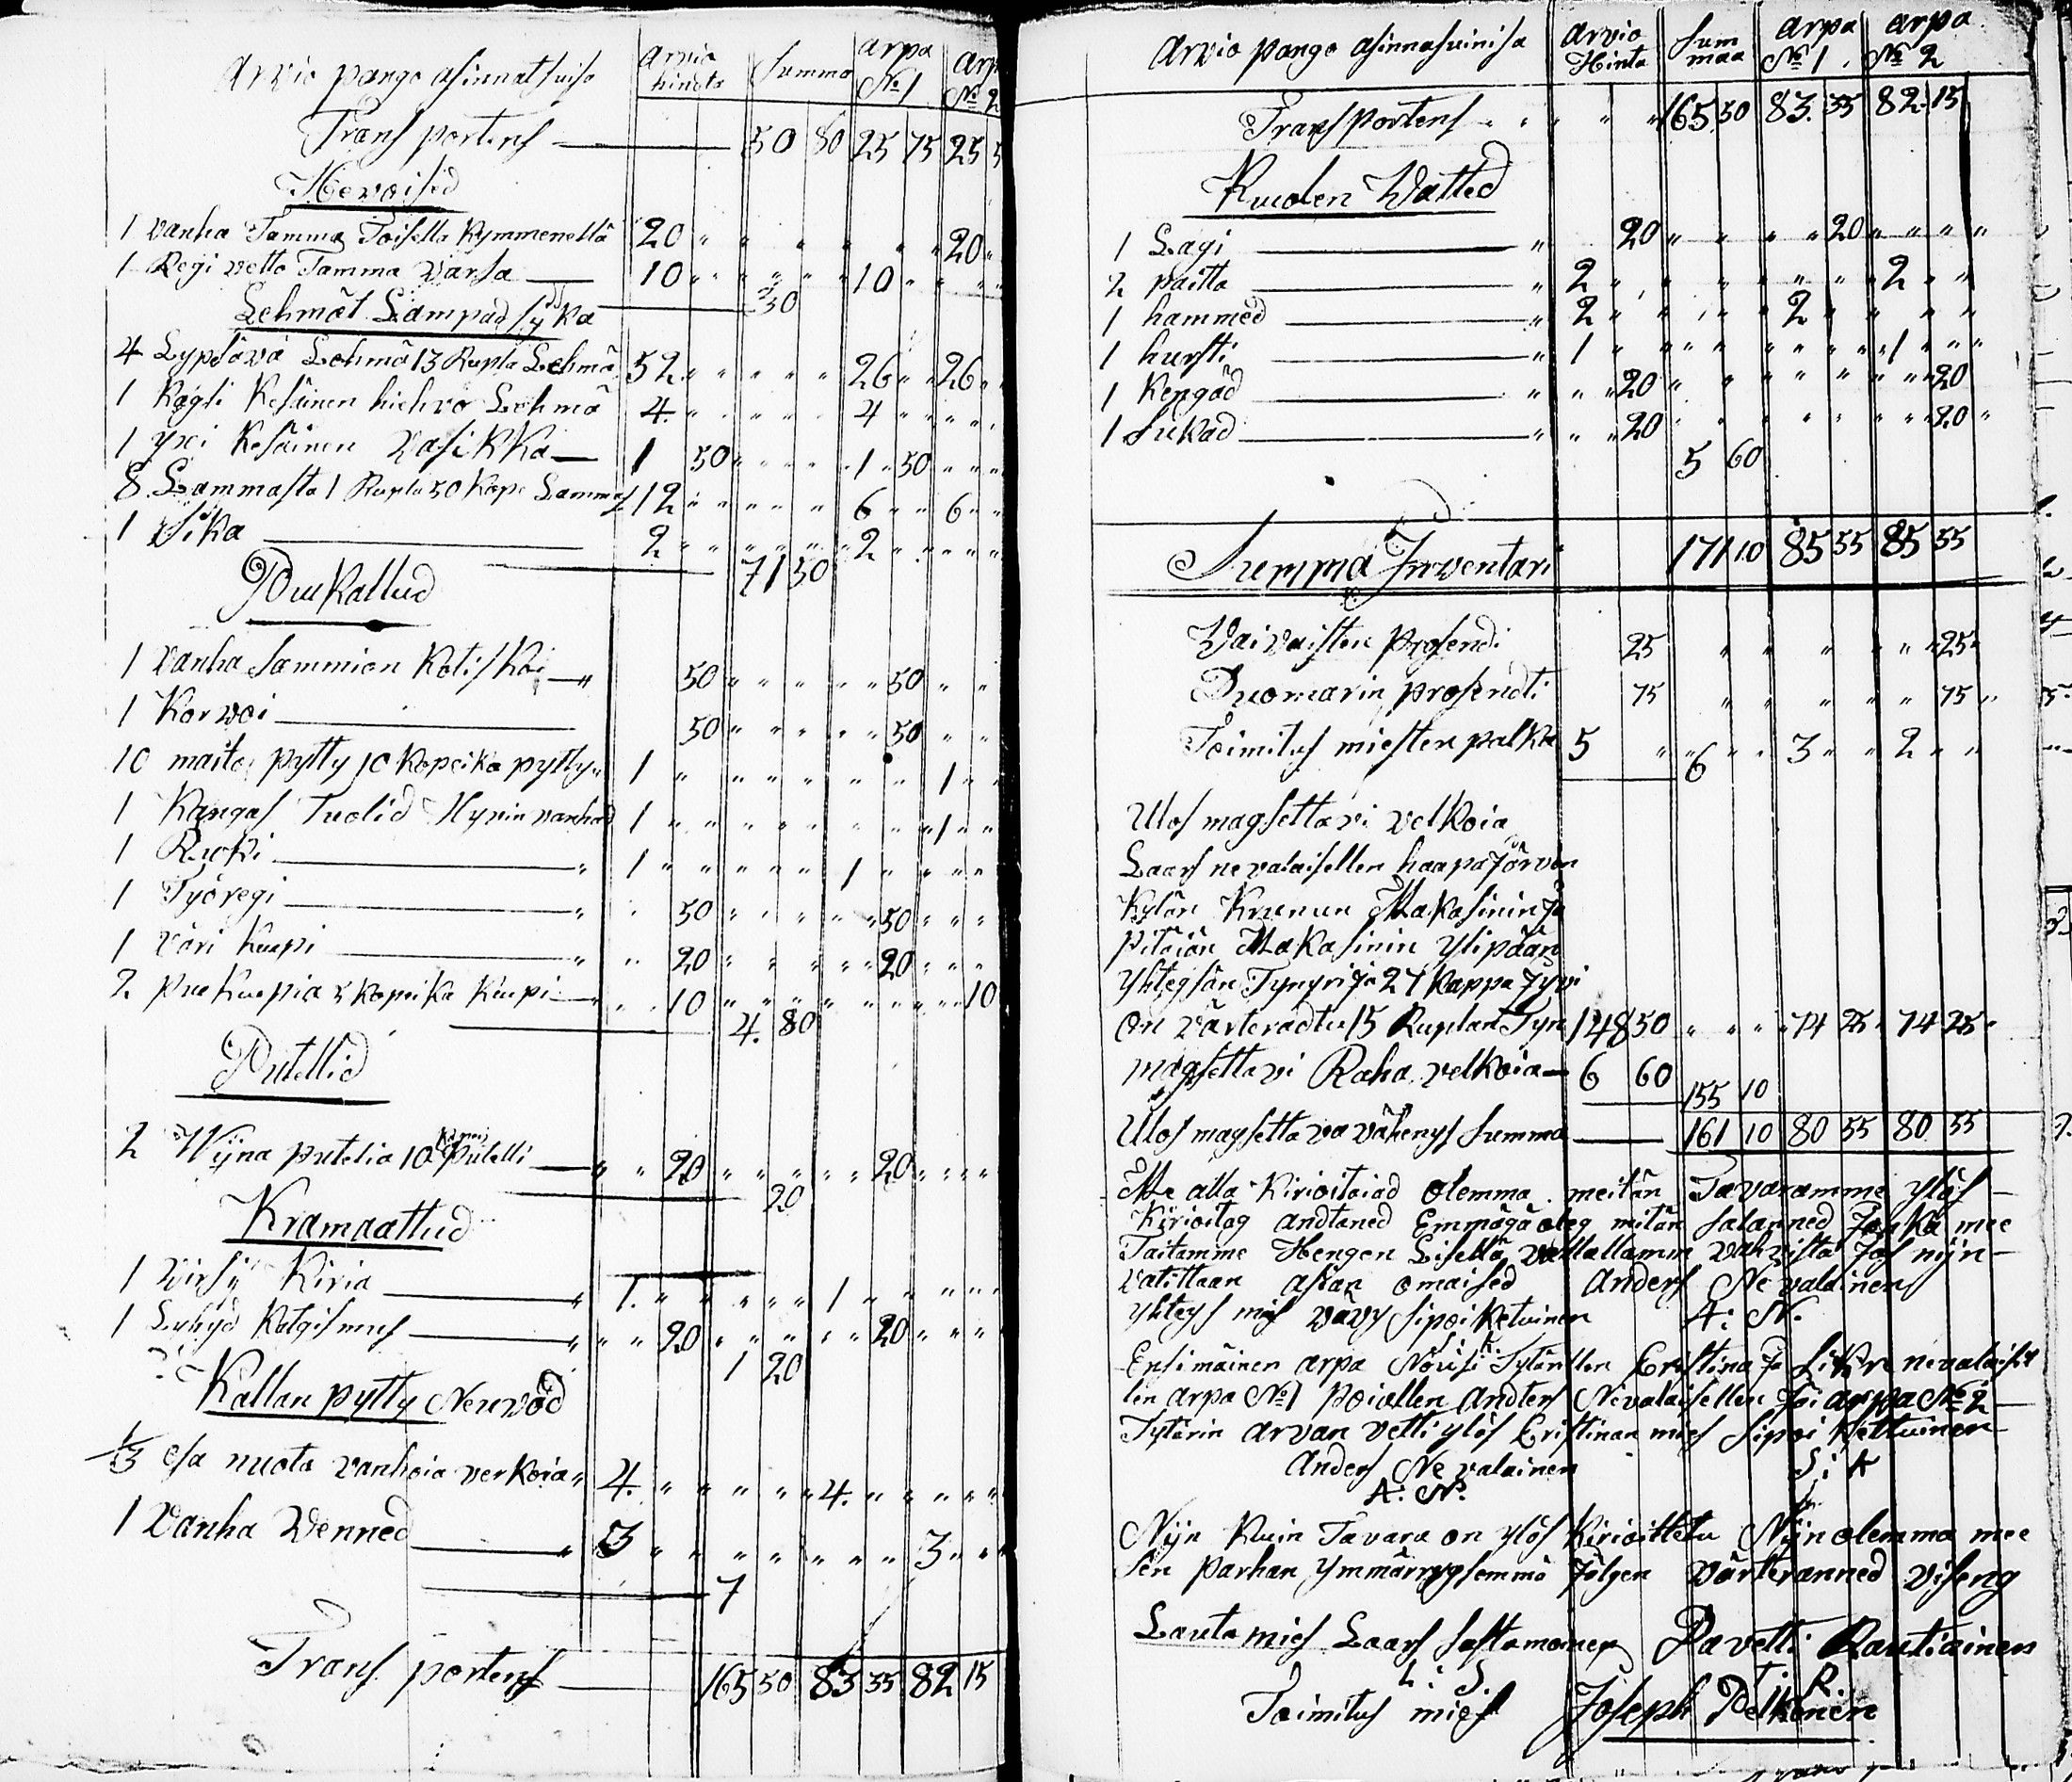 Arvio pango asinnatsuisa Arvio hindta Summa arpa No 1 arp No 2
Transportens 50 80 25 75 25 5
Hevoised
1 vanha Tamma Toisella Kymmenellä 20 " " " " " " 20 "
1 Regi vetto Tamma Varsa 10 " " " " " 10 " " "
30
Lehmät Lampad ja Syka
4 Lypsävä Lehmä 13 Rupla Lehmä 52 " " " " " 26 " " 26 " "
1 Kagsi Kesäinen hiehvo Lehmä 4 " " " " 4 " " " "
1 yxi Kesäinen Vasikka 1 50 " " " " 1 50 " " "
8 Lammasta 1 Rupla 50 Kope Lammas 12 " " " " " 6 " " 6 " "
1 Sika 2 " " " " " " 2 " " " " "
71 50
Puu Kallud
1 Vanha Sammion Kotiska " 50 " " " " " 50 " "
1 Korvoi 50 " " " " " 50 " "
10 maito pytty 10 Kopeika pytty " 1 " " " " " " 1 " "
1 Kangas Tuolid Hyvin vanhad 1 " " " " " " " 1 " "
1 Ruoki " 1 " " " " " 1 " " " "
1 Työregi " " 50 " " " " " 50 " " "
1 väri Kuupi " " 20 " " " " " 20 " " "
2 puu Kuupia 5 Kopeika Kuupi " " 10 " " " " " " " " 10
4. 80
Putellid
2 Wijna putelia 10 Kopei Putelli " " 20 " " " " " 20 " " " "
20
Kramaattud
1 Virsy Kiria " 1. " " " " " 1 " " " " "
1 Lyhyd Katgismus " " 20 " " " " " 20 " " " "
1 20
Kallan pytty Neuvod
1/3 osa nuota vanhoia verkoia " 4. " " " " " 4. " " " " "
1 Vanha Venned " 3 " " " " " " " 3 " " "
7
Transportens 165 50 83 35 82 15
Arvio pango asinnasuinisa Arvio Hinta Sum maa arpa No 1. arpa No 2
Transportens " " " " " 165 50 83. 35 82. 15
Ruolen Watted
1 Lagi " 20 " " " " 20 " " " "
2 paitta " 2 " " " " " " 2 " "
1 hammed " 2 " " " " 2 " " " "
1 hursti " 1 " " " " " " " 1 " " "
1 Kengäd " " " 20 " " " " " " " 20
1 Sukad " " " 20 " " " " " " " 20 "
5 60
Summa Inventari 171 10 85 55 85 55
Waivaisten prosendi 25 " " " " " 25 "
Duomarin prosendti 75 " " " " " 75 "
Toimitus miesten palka 5 " " 6 " " 3 " " 2 " "
Ulos magsettavi velkoia
Laars nevalaisellen haapajärven
Kylän Kruunun Makasinin Ja
pitäiän Makasinin ylipään
Yhtegsän Tynyri Ja 27 Kappa Jyvi
on värteradtu 15 Ruplan Tyn 148 50 " " " " 74 25 " 74 25 "
magsettavi Raha velkoia 6 60
155 10
Ulos magsettava vähenys Summa 161 10 80 55 80 55
Me alla Kirioitaiad olemma meitän Tavaramme ylös
Kirioitag andtaned Emmägä oleg mitän salanned Jonka mee
Taitamme Hengen Lisellä vallallamm vahvista Jos nijn
vatittaan asian omaised Anders Nevalainen
Yhteys mis vävy Sipoi Ketuinen A: N.
S: K:
Ensimäinen arpa Nousi Tytärillen Eristina Ja Sikre nevalaisel
len arpa No 1 poiallen Anders Nevalaisellen Jäi arpa No 2
Tytärin arvan vetti ylös Eristinan mies Sipoi Kettuinen
Anders Nevalainen S: K
A: N.
Nijn Kuin Tavara on ylös Kirioittetu Nijn olemma mee
sen parhan ymmärrygsemmä Jälgen Värteranned viseng
Lauta mies Laars Sastamoinen Pavetti Rautiainen
L: S. P: R.
Toimitus mies Joseph Pelkonen